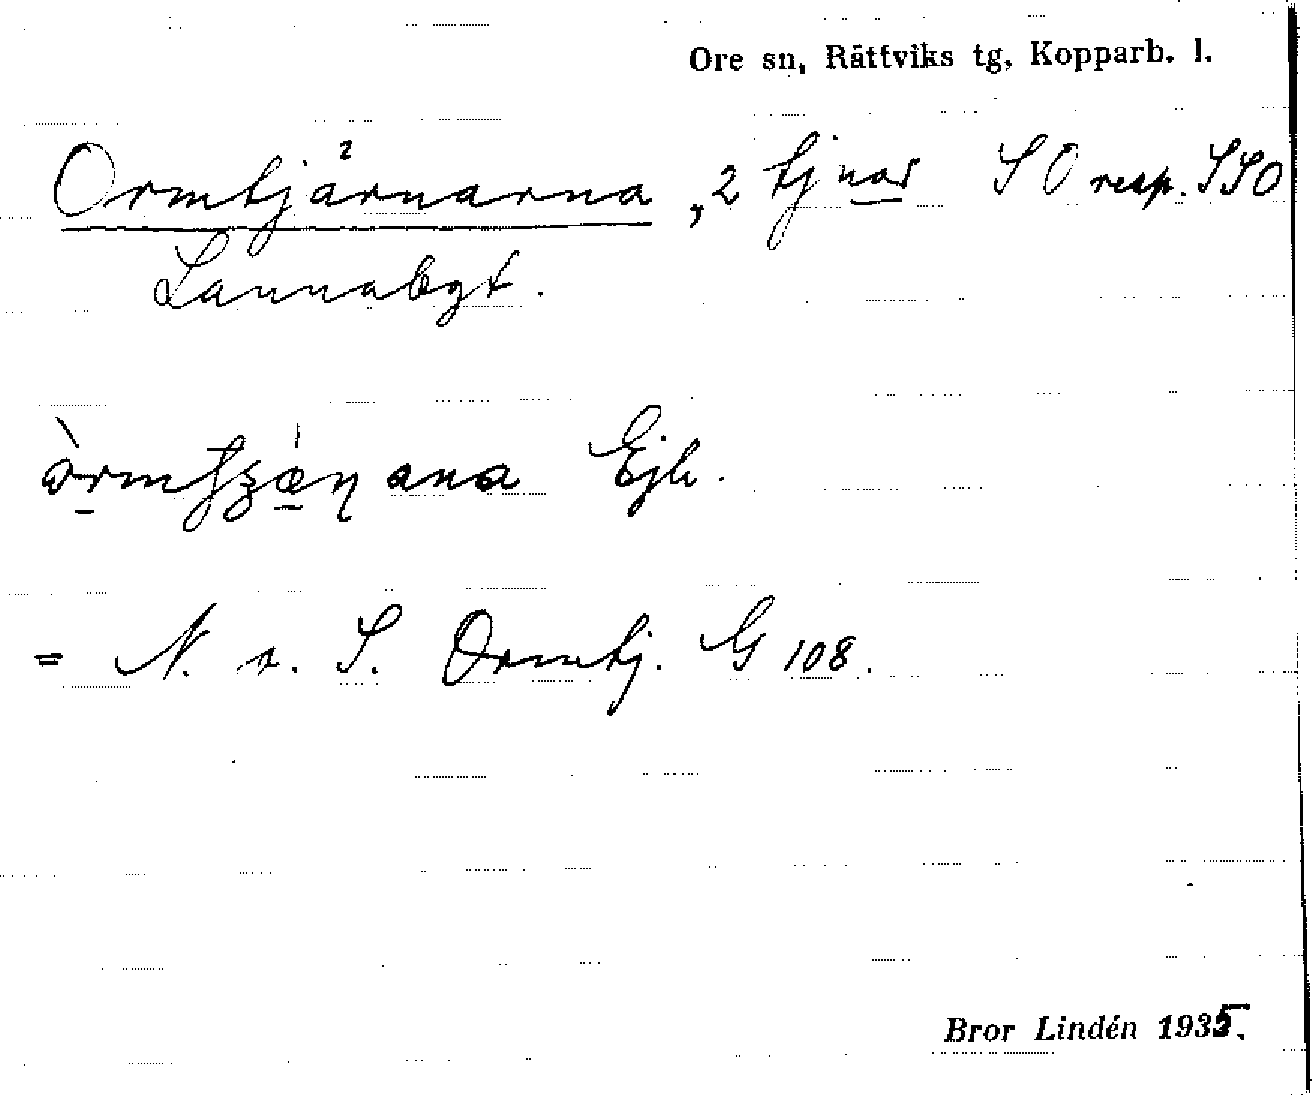 Ore sn, Rättviks tg, Kopparb. l.
Ormtjärnarna, 2 tjnar SO resp. SSO
Lannabgt.
Ejh.
= N. o. S. Ormtj. G 108.
Bror Lindén 1935.